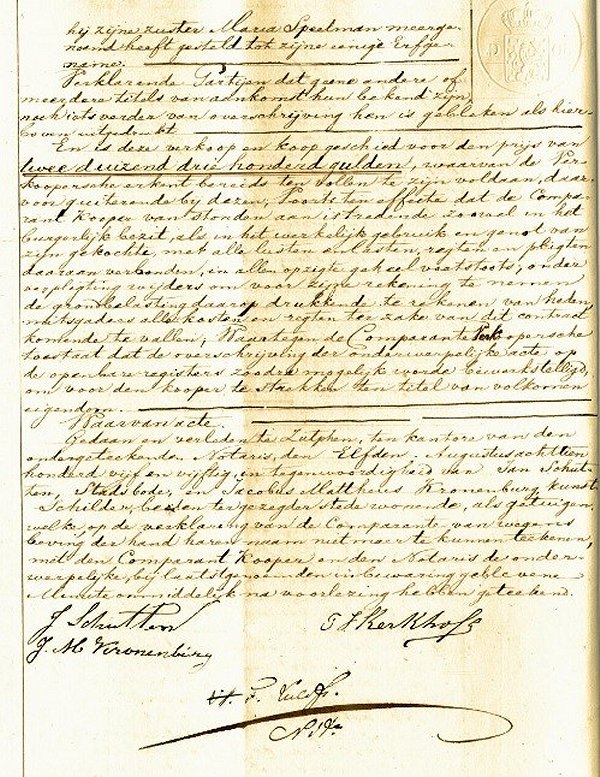 hij zijne zuster Maria Speelman meerge-
noemd heeft gesteld tot zijne eenige Erfge-
name.
Verklarende Partijen dat geene andere of
meerdere titels van aankomst hun bekend zijn
noch iets verder van overschrijving hen is gebleken als hier-
boven uitgedrukt.
En is deze verkoop en koop geschied voor den prijs van
twee duizend drie honderd gulden, waarvan de Ver-
koopersche erkent bereids ten vollen te zijn voldaan, daar-
voor quiterende bij dezen, voorts ten effecte dat de Compa-
rant Kooper van stonden aan is tredende zoowel in het
burgerlijk bezit, als in het werkelijk gebruik en genot van
zijn gekochte, met alle lusten en lasten, regten en pligten
daaraan verbonden, in allen opzigte geheel voetstoots, onder
verpligting wijders om voor zijne rekening te nemen
de grondbelasting daarop drukkende te rekenen van heden,
mitsgaders alle kosten en regten ter zake van dit contract
komende te vallen; Waartegen de Comparante Verkoopersche
toestaat dat de overschrijving der onderwerpelijke acte op
de openbare registers zoodra mogelijk worde bewerkstelligd,
om voor den kooper te strekken ten titel van volkomen
eigendom.
Waarvan acte
Gedaan en verleden te Zutphen, ten kantore van den
ondergeteekende Notaris, den Elfden Augustus achttien
honderd vijf en vijftig, in tegenwoordigheid van Jan Schut-
ten, Stadsbode, en Jacobus Mattheus Kronenburg kunst-
Schilder, beiden ter gezegder stede wonende, als getuigen,
welke, op de verklaring van de Comparante van wegens
beving der hand haren naam niet meer te kunnen teekenen,
met den Comparant Kooper en den Notaris de onder-
werpelijke, bij laatstgenoemden in bewaring geblevene
Minute onmiddelijk na voorlezing hebben geteekend.
J Schutten
Kerkhoff
J. M. Kronenburg